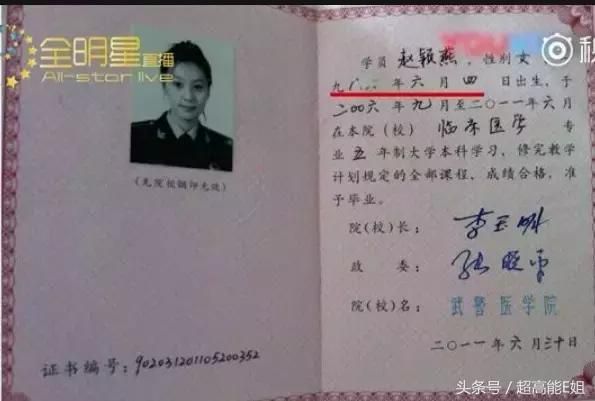 全明星直播
All-star live
(无院校钢印无效)
证书编号:902031201105200352
学员 赵颖燕,性别 女
九 年 六 月 四 日出生,于
二00六 年 九 月至二0一一年 六 月
在本院(校) 临床医学 专
业 五 年制大学本科学习,修完教学
计划规定的全部课程,成绩合格,准
予毕业。
院(校)长:
政 委:
院(校)名: 武警医学院
二0一一年 六 月三十日
头条号 / 超高能E姐